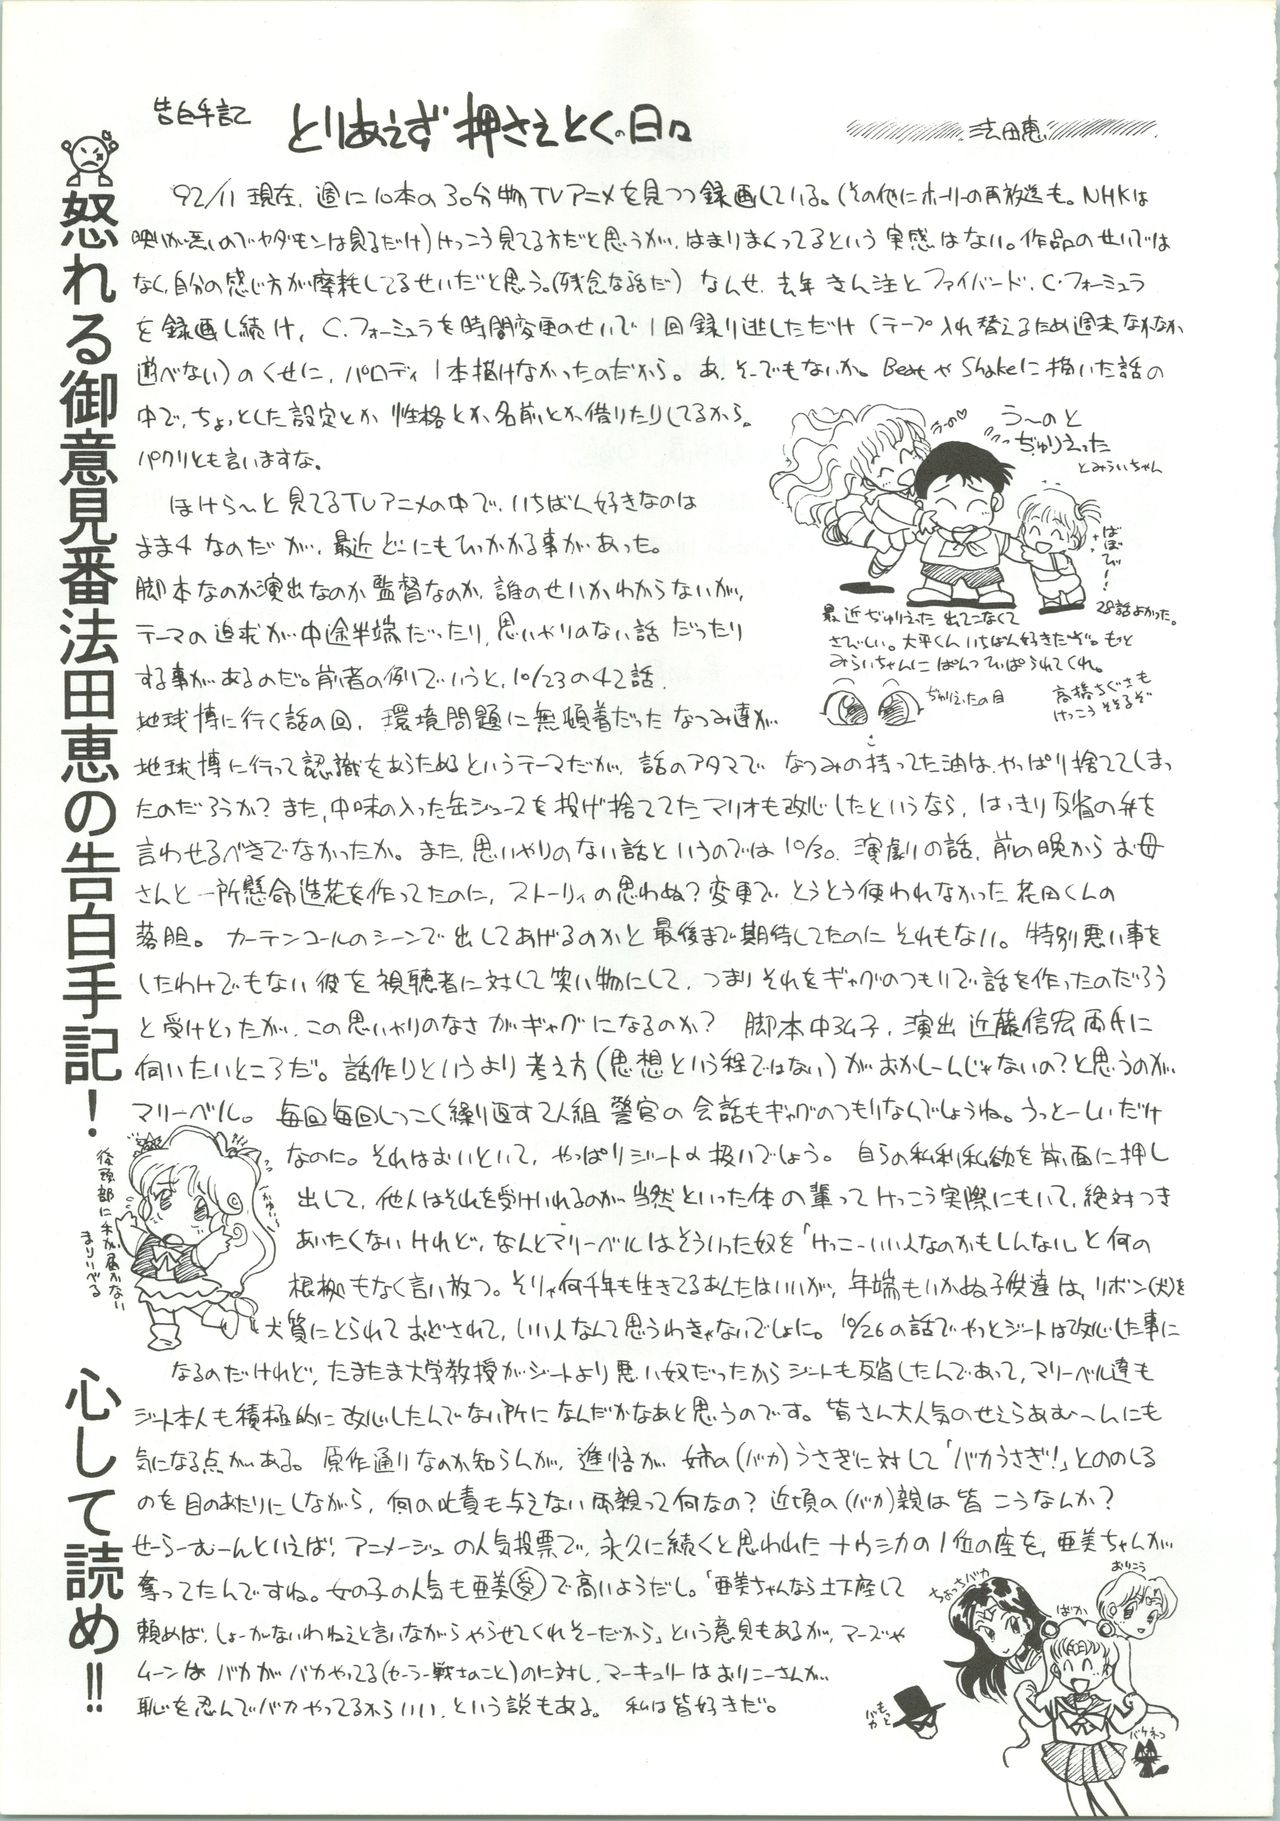 怒れる御意見番法田恵の告白手記！
心して読め!!
告白手記
とりあえず押さえとくの日々
法田恵
92/11現在、週に10本の30分物TVアニメを見つつ録画している。(その他にホーリーの再放送も。NHKは
映りが悪いのでヤダモンは見るだけ)けっこう見てる方だと思うが、はまりまくってるという実感はない。作品のせいでは
なく、自分の感じ方が摩耗してるせいだと思う。(残念な話だ) なんせ、去年 きん注とファイバード、C・フォーミュラ
を録画し続け、C・フォーミュラを時間変更のせいで1回録り逃しただけ(テープ入れ替えるため週末なかなか
遊べない)のくせに、パロディ1本描けなかったのだから。あ、そーでもないか。BeatやShakeに描いた話の
中で、ちょっとした設定とか性格とか名前とか借りたりしてるから。
パクリとも言いますな。
ほけら〜と見てるTVアニメの中で、いちばん好きなのは
まま4なのだが、最近どこにもひっかかる事があった。
脚本なのか演出なのか監督なのか、誰のせいかわからないが、
テーマの追求が中途半端だったり、思いやりのない話だったり
する事があるのだ。前者の例でいうと、10/23の42話、
地球博に行く話の回、環境問題に無頓着だったなつみ達が
地球博に行って認識をあらためるというテーマだが、話のアタマでなつみの持ってた油は、やっぱり捨ててしまっ
たのだろうか？また、中味の入った缶ジュースを投げ捨ててたマリオも改心したというなら、はっきり反省の弁を
言わせるべきでなかったか。また、思いやりのない話というのでは10/30、演劇の話、前の晩からお母
さんと一所懸命造花を作ってたのに、ストーリィの思わぬ？変更で、とうとう使われなかった花田くんの
落胆。カーテンコールのシーンで出してあげるのかと最後まで期待してたのにそれもない。特別悪い事を
したわけでもない彼を視聴者に対して笑い物にして、つまりそれをギャグのつもりで話を作ったのだろう
と受けとったが、この思いやりのなさがギャグになるのか？ 脚本中弘子、演出近藤信宏両氏に
伺いたいところだ。話作りというより考え方(思想という程ではない)がおかしーんじゃないの？と思うのが、
マリーベル。毎回毎回しつこく繰り返す2人組警官の会話もギャグのつもりなんでしょうね。うっとーしいだけ
なのに。それはおいといて、やっぱりジートの扱いでしょう。自らの私利私欲を前面に押し
出して、他人はそれを受けいれるのが当然といった体の輩ってけっこう実際にもいて、絶対つき
あいたくないけれど、なんとマリーベルはそういった奴を「けっこーいい人なのかもしんない」と何の
根拠もなく言い放つ。そりゃ何千年も生きてるあんたはいいが、年端もいかぬ子供達は、リボン(犬)を
犬質にとられておどされて、いい人なんて思うわきゃないでしょに。10/26の話でやっとジートは改心した事に
なるのだけれど、たまたま大学教授がジートより悪い奴だったからジートも反省したんであって、マリーベル達も
ジート本人も積極的に改心したんでない所になんだかなあと思うのです。皆さん大人気のせえらあむ〜んにも
気になる点がある。原作通りなのか知らんが、進悟が姉の(バカ)うさぎに対して「バカうさぎ！」とののしる
のを目のあたりにしながら、何の叱責も与えない両親って何なの？近頃の(バカ)親は皆こうなんか？
せーらーむーんといえば、アニメージュの人気投票で、永久に続くと思われたナウシカの1位の座を、亜美ちゃんが
奪ってたんですね。女の子の人気も亜美(受)で高いようだし。「亜美ちゃんなら土下座して
頼めば、しょーがないわねえと言いながらやらせてくれそーだから」という意見もあるが、マーズや
ムーンはバカがバカやってる(セーラー戦士のこと)のに対し、マーキュリーはおりこーさんが
恥を忍んでバカやってるからいい、という説もある。私は皆好きだ。
うーの♡
う〜のと
ぢゅりえった
とみらいちゃん
ばぶび〜！
28話よかった。
最近ぢゅりえった出てこなくて
さびしい。大平くんいちばん好きだぞ。もっと
みらいちゃんにほっぺたひっぱられてくれ。
ぢゅりえったの目
高橋ちぐさも
けっこうそそるぞ
後頭部に手が届かない
まりいべる
かゆい〜
ちょっちバカ
おりこう
ばか
もっとバカ
バケネコ